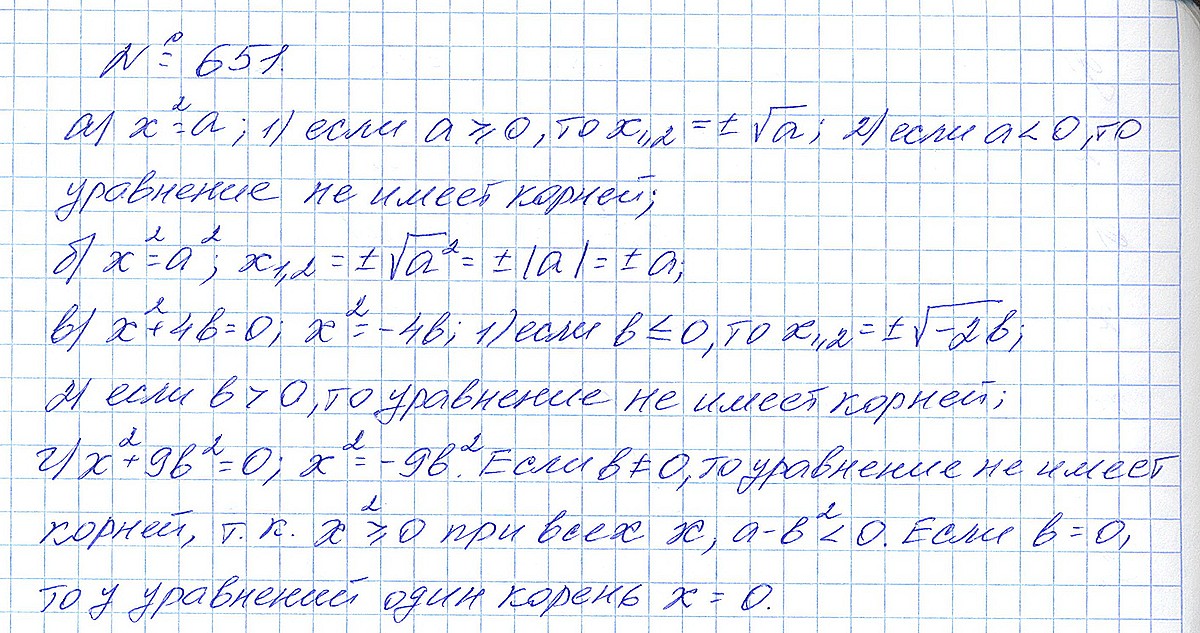 № 651.
а) x² = a; 1) если a ⩾ 0, то x₁,₂ = ± √a; 2) если a < 0, то
уравнение не имеет корней;
б) x² = a²; x₁,₂ = ± √a² = ± |a| = ± a;
в) x² + 4в = 0; x² = -4в; 1) если в ≤ 0, то x₁,₂ = ± √-2в;
2) если в > 0, то уравнение не имеет корней;
г) x² + 9в² = 0; x² = -9в². Если в ≠ 0, то уравнение не имеет
корней, т.к. x² ⩾ 0 при всех x, а -в² < 0. Если в = 0,
то у уравнений один корень x = 0.